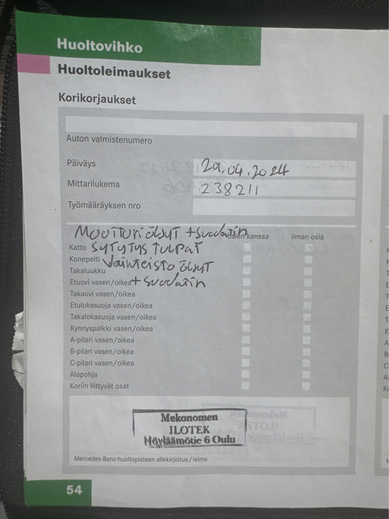 Huoltovihko
Huoltoleimaukset
Korikorjaukset
Auton valmistenumero
Päiväys 29.04.2024
Mittarilukema 238211
Työmääräyksen nro
Moottoriöljyt + suodatin kanssa ilman osia
Katto SYTYTYS TULPAT
Konepelti Vaihteisto öljyt
Takaluukku
Etuovi vasen/oikea + suodatin
Takaovi vasen/oikea
Etulokasuoja vasen/oikea
Takalokasuoja vasen/oikea
Kynnyspalkki vasen/oikea
A-pilari vasen/oikea
B-pilari vasen/oikea
C-pilari vasen/oikea
Alapohja
Koriin liittyvät osat
Mekonomen
ILOTEK
Höyläämötie 6 Oulu
Mercedes-Benz-huoltopisteen allekirjoitus/leima
54